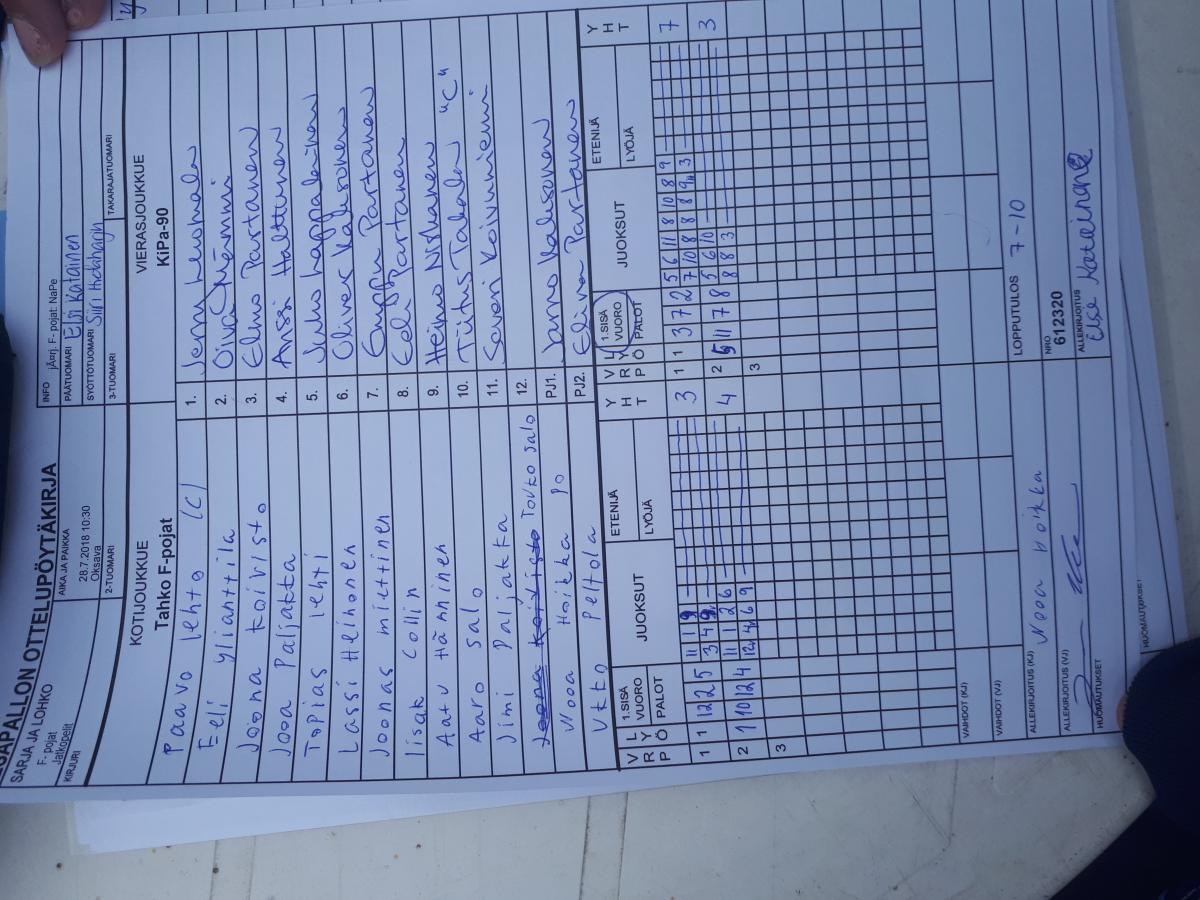 PESÄPALLON OTTELUPÖYTÄKIRJA
SARJA JA LOHKO
F- pojat
Jatkopelit
AIKA JA PAIKKA
28.7.2018 10:30
Oksava
INFO jÄorj. F- pojat: NaPe
PÄÄTUOMARI Elsi Katainen
SYÖTTÖTUOMARI
KIRJURI 2-TUOMARI 3-TUOMARI TAKARAJATUOMARI
KOTIJOUKKUE VIERASJOUKKUE
Tahko F-pojat KiPa-90
Paavo lehto (C) 1. Jenny
Eeli ylianttila 2. Oiva Nämmi
Joona koivisto 3. Elmo Partanen
Jooa Paljakka 4. Anssi Halttunen
Topias lehti 5. Juho
Lassi Heinonen 6. Oliver Kaksonen
Joonas miettinen 7. Partanen
Iisak Collin 8. Eeli Partanen
Aatu Hänninen 9. Heimo Niskanen
Aaro salo 10. Tiitus Takala "C"
Jimi Paljakka 11. Saveri Koivuniemi
Touko salo 12.
Nooa Hoikka PJ1. Jarmo Kaksonen
Ukko Peltola PJ2. Elina Partanen
V R P L Y Ö 1.SISÄ VUORO PALOT JUOKSUT ETENIJÄ LYÖJÄ Y H T V R P L Y Ö 1.SISÄ VUORO PALOT JUOKSUT ETENIJÄ LYÖJÄ Y H T
1 1 12 2 5 11 1 9 3 1 1 3 7 2 5 6 11 8 10 8 9 7
3 4 9 7 10 8 8 8 9 3
2 1 10 12 4 11 1 2 6 4 2 5 11 7 8 5 6 10 3
12 4 6 9 8 8 3
3 3
VAIHDOT (KJ)
VAIHDOT (VJ)
ALLEKIRJOITUS (KJ) Nooa hoikka LOPPUTULOS 7-10
ALLEKIRJOITUS (VJ) NRO 612320
HUOMAUTUKSET ALLEKIRJOITUS Else Katainen
HUOMAUTUKSET